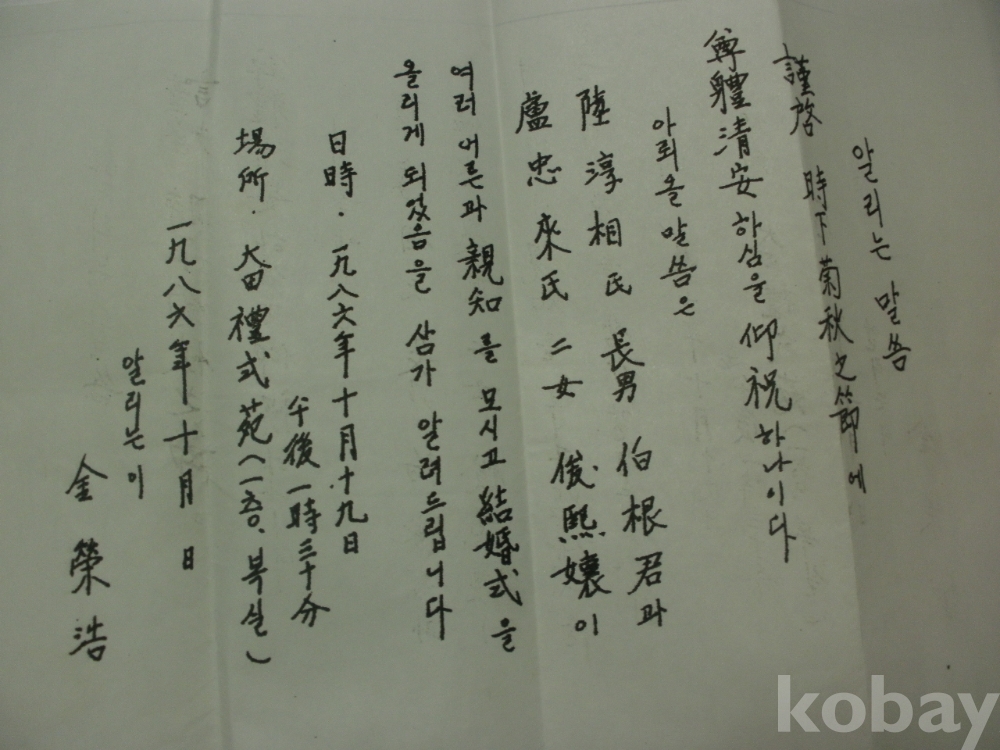 알리는 말씀
謹啓 時下菊秋之節에
尊體淸安하심을 仰祝하나이다
아뢰올말씀은
陸淳相氏 長男 伯根君과
盧忠來氏 二女 俊熙孃이
여러 어른과 親知를 모시고 結婚式을
올리게 되었음을 삼가 알려드립니다
日時. 一九八六年十月十九日
午後一時三十分
場所. 大田禮式苑(一층. 북실)
一九八六年 十月 日
알리는이
金榮浩
kobay